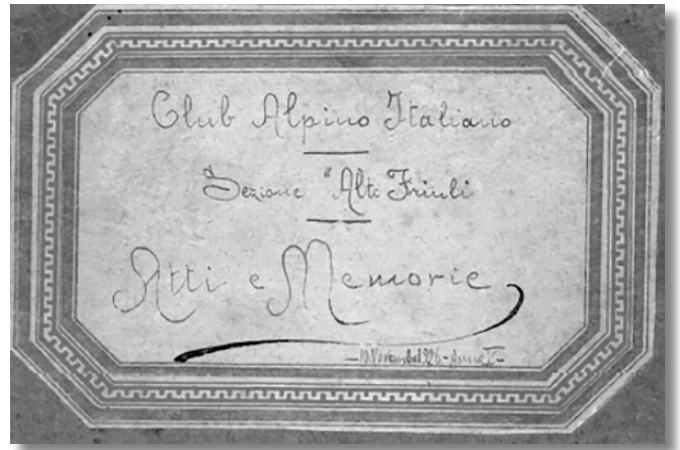 Club Alpino Italiano
Sezione "Alto Friuli
Atti e Memorie
Novembre 1926 - Anno V -